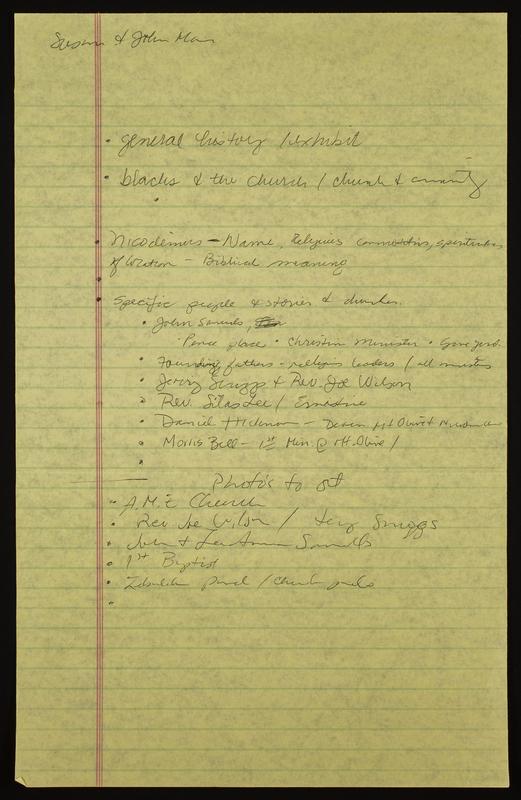 Susan & John Man
• general history / exhibit
• blacks & the church / church & community
•
• Nicodemus - Name, Religious connotations,
of Watson - Biblical meaning
•
• Specific people & stories & churches.
• John Samuels,
• Pence place • Christian Minister •
• Founding fathers - religious leaders / all ministers
• Jerry Scruggs & Rev. Joe Wilson
• Rev. Silas Lee / Ernestine
• Daniel Hickman - Mt Olive &
• Morris Bell - 1st Min. @ Mt. Olive /
•
Photo's to get
• A.M.E Church
• Rev. Joe Wilson / Jerry Scruggs
• John & Lee Anna Samuels
• 1st Baptist
• / Church
•